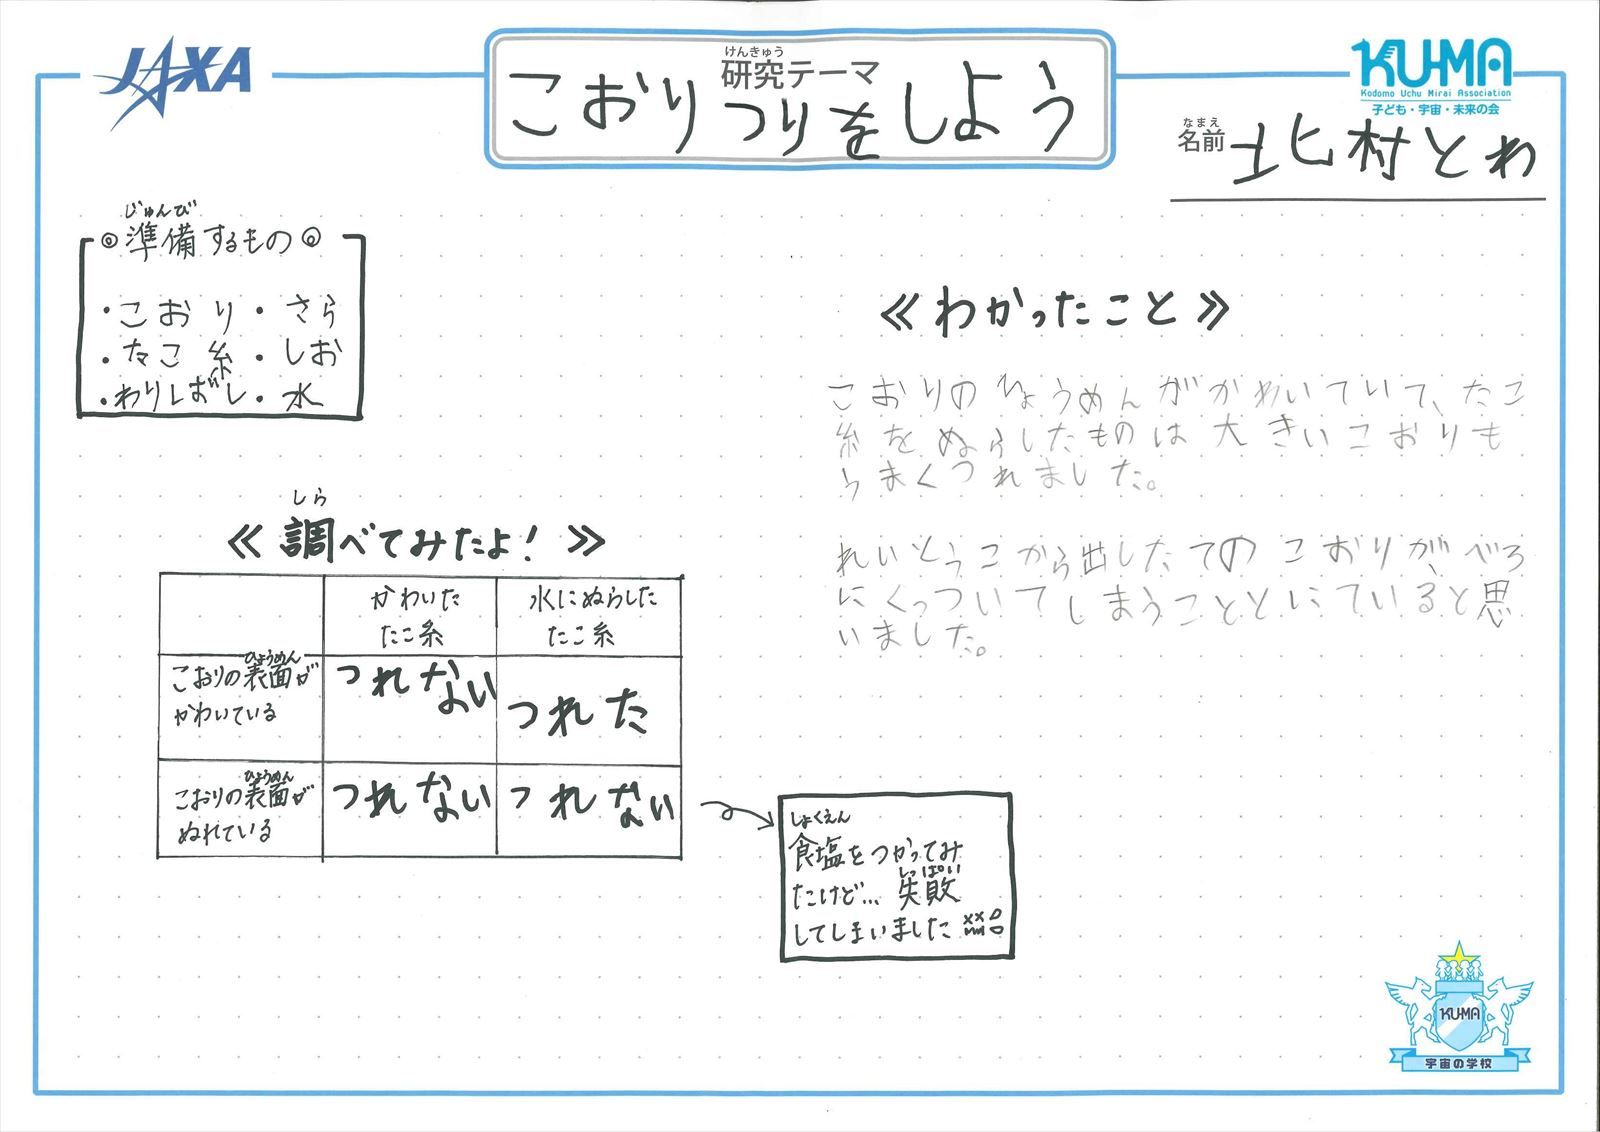 JAXA
けんきゅう
研究テーマ
こおりつりをしよう
KU-MA
Kodomo Uchu Mirai Association
子ども・宇宙・未来の会
なまえ
名前 北村とわ
じゅんび
◎準備するもの◎
・こおり・さら
・たこ糸・しお
・わりばし・水
しら
≪調べてみたよ！≫
かわいた
たこ糸
水にぬらした
たこ糸
ひょうめん
こおりの表面が
かわいている
つれない
つれた
ひょうめん
こおりの表面が
ぬれている
つれない
つれない
しょくえん
食塩をつかってみ
しっぱい
たけど…失敗
してしまいました
≪わかったこと≫
こおりのひょうめんがかわいていて、たこ
糸をぬらしたものは大きいこおりも
うまくつれました。
れいとうこから出したてのこおりが、べろ
にくっついてしまうこととにていると思
いました。
KU-MA
宇宙の学校